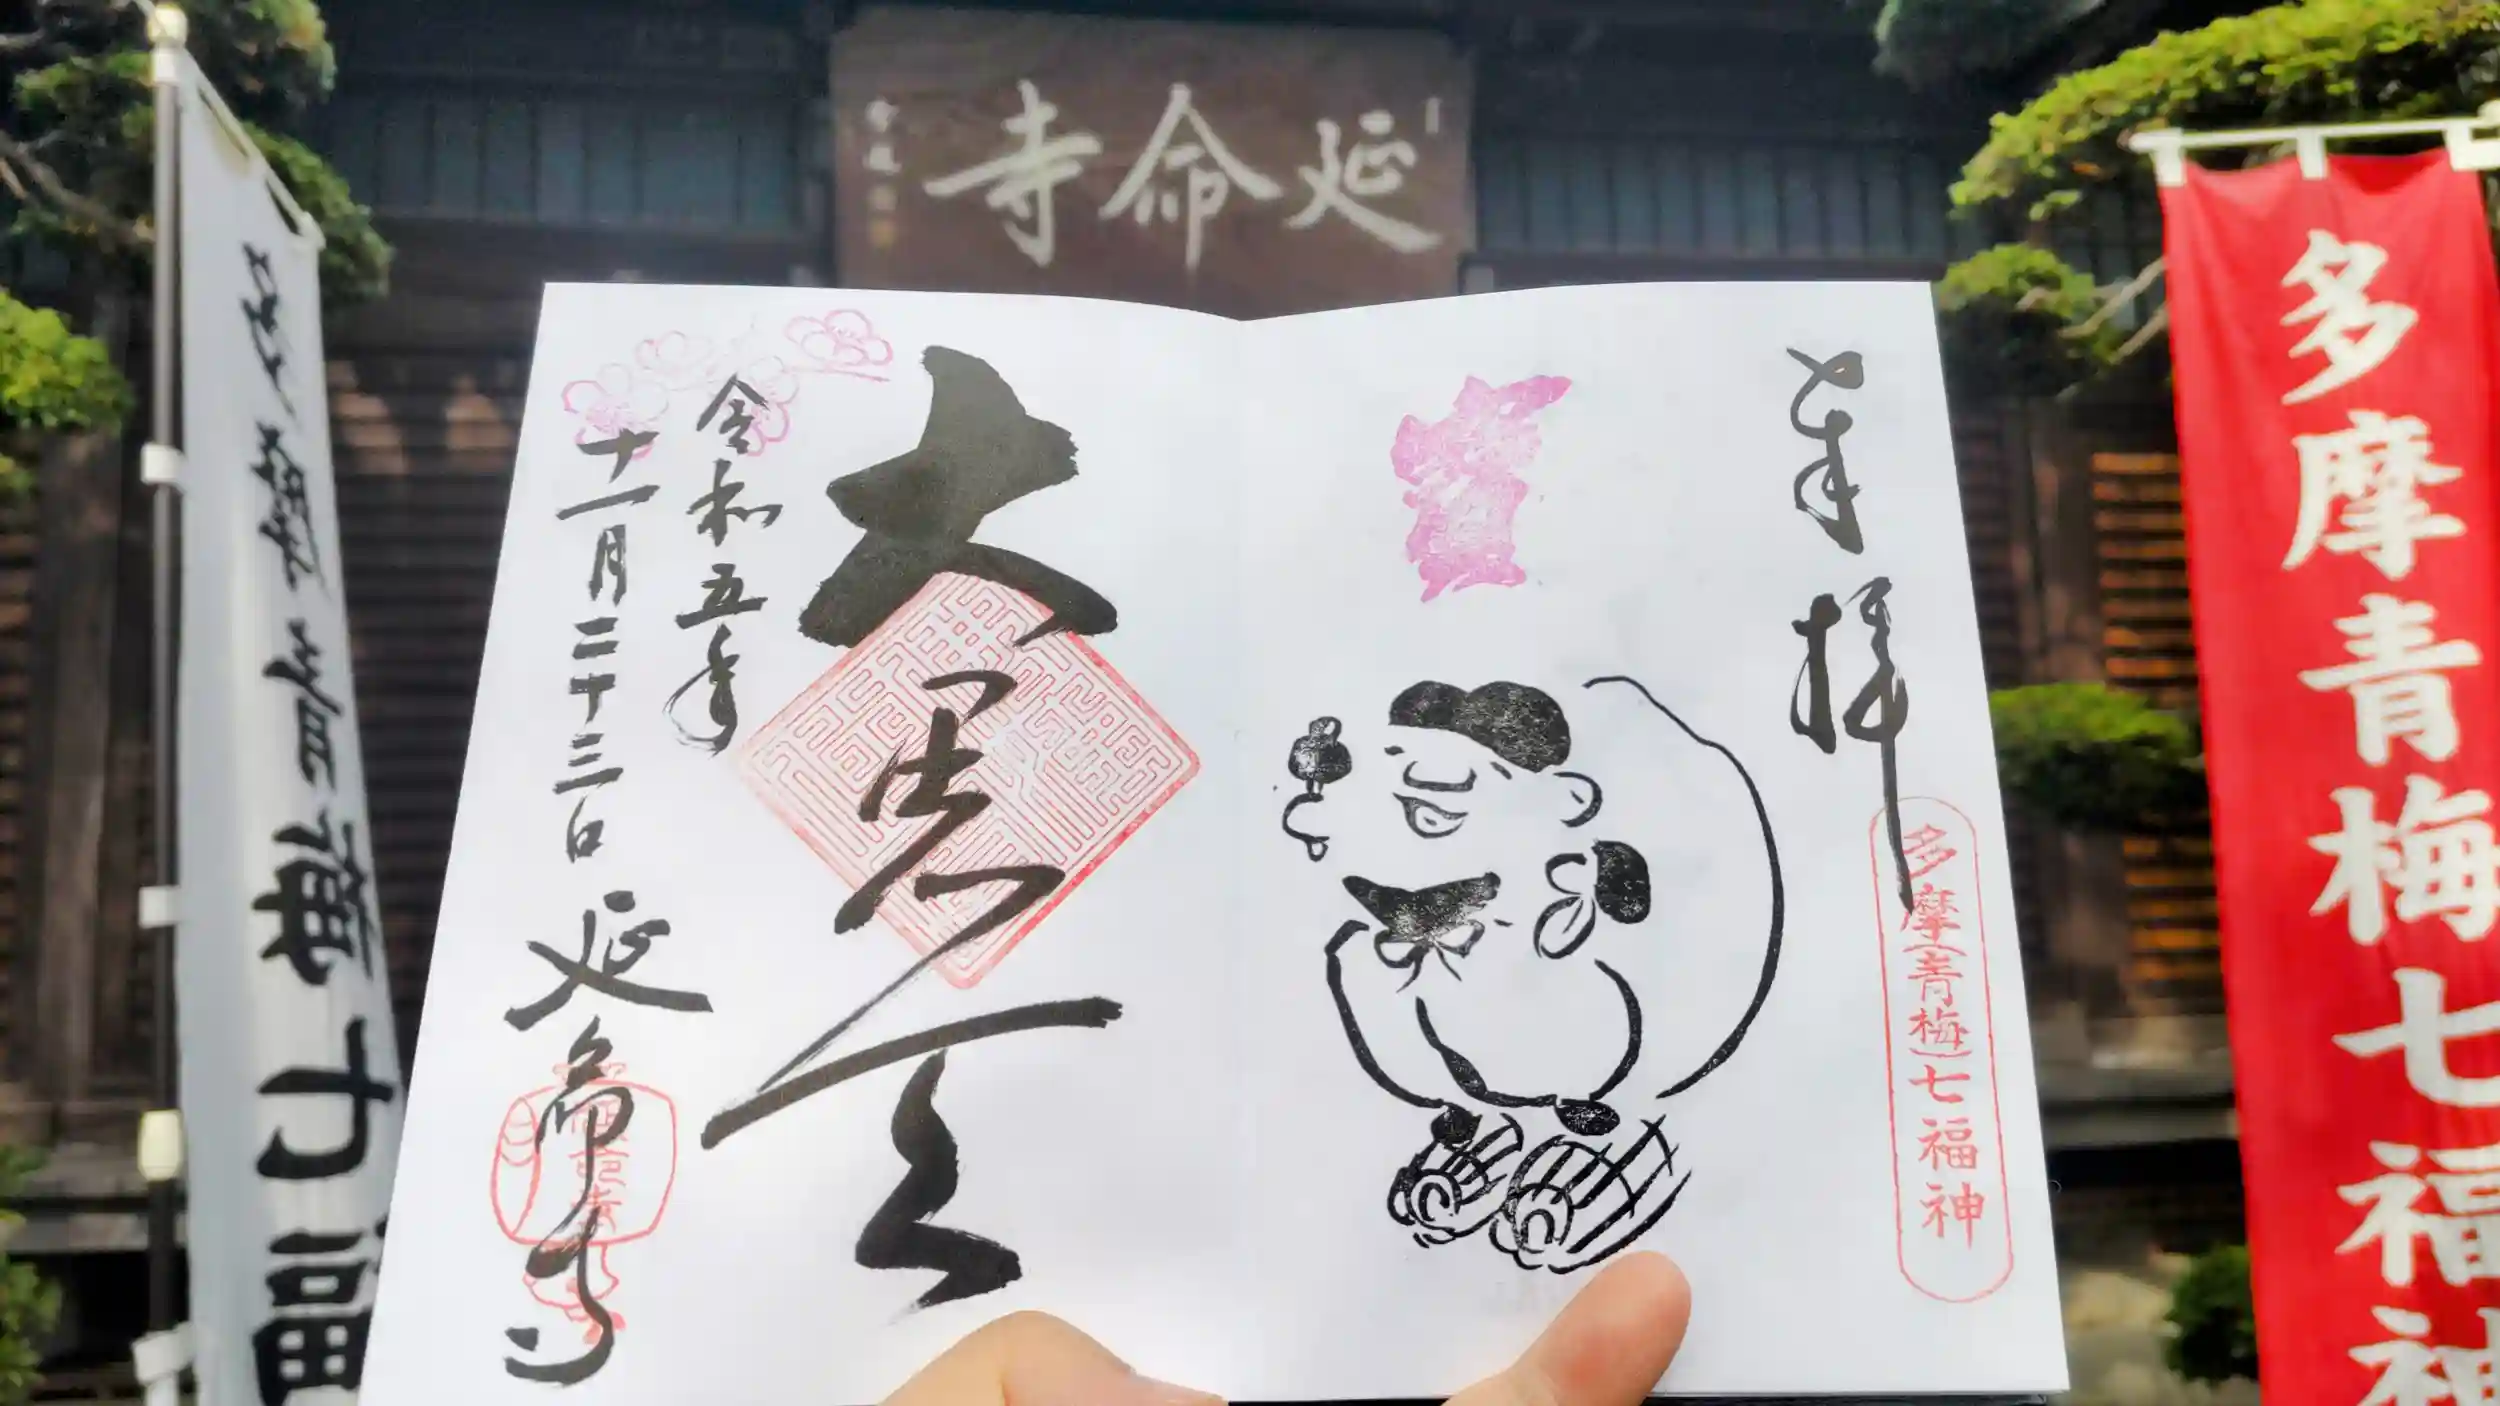 延命寺
多摩青梅七福神
多摩青梅七福
奉拝
多摩(青梅)七福神
大黒天
令和五年
十一月二十三日
延命寺